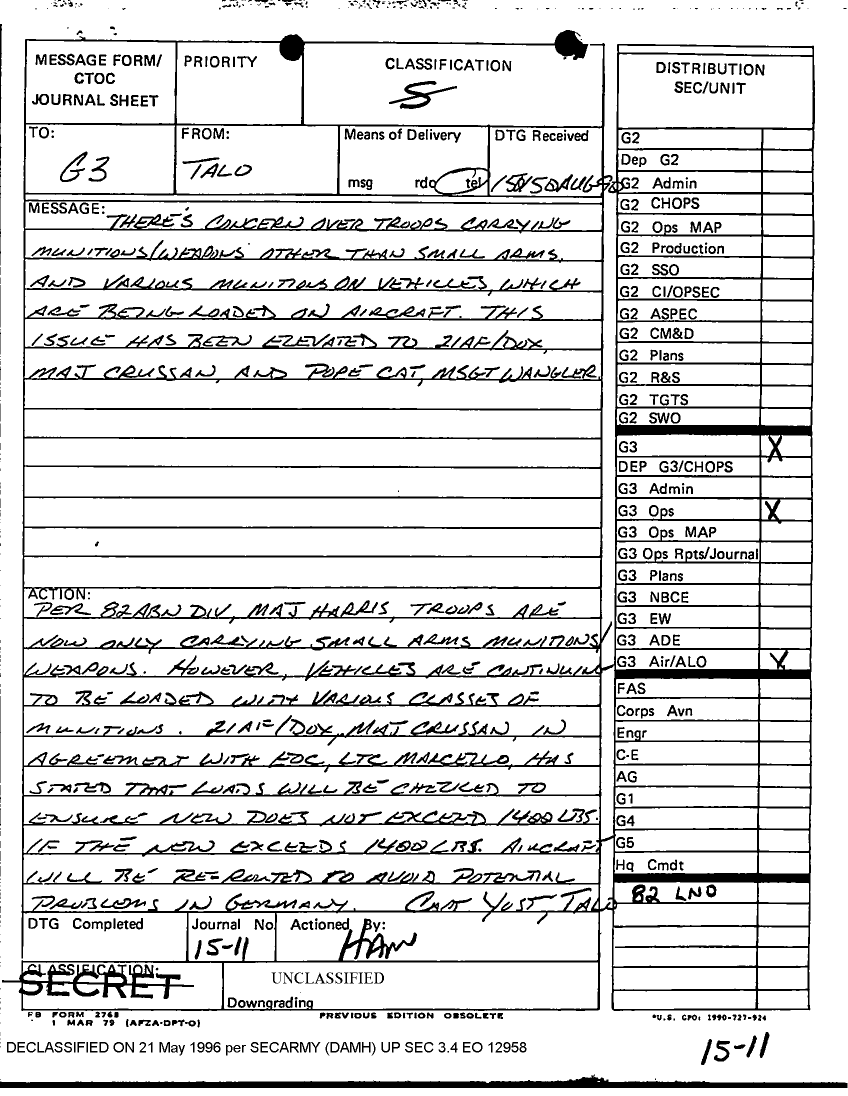 MESSAGE FORM/
CTOC
JOURNAL SHEET
PRIORITY
CLASSIFICATION
S
TO:
G3
FROM:
TALO
Means of Delivery
msg rdo tel
DTG Received
MESSAGE: THERE'S CONCERN OVER TROOPS CARRYING
MUNITIONS/WEAPONS OTHER THAN SMALL ARMS,
AND VARIOUS MUNITIONS ON VEHICLES, WHICH
ARE BEING LOADED ON AIRCRAFT. THIS
ISSUE HAS BEEN ELEVATED TO 21AF/DOX,
MAJ CRUSSAN, AND POPE CAT, MSGT WANGLER.
ACTION:
PER 82ABN DIV, MAJ HARRIS, TROOPS ARE
NOW ONLY CARRYING SMALL ARMS MUNITIONS/
WEAPONS. HOWEVER, VEHICLES ARE CONTINUING
TO BE LOADED WITH VARIOUS CLASSES OF
MUNITIONS. 21AF/DOX, MAJ CRUSSAN, IN
AGREEMENT WITH EOC, LTC MARCELLO, HAS
STATED THAT LOADS WILL BE CHECKED TO
ENSURE NEW DOES NOT EXCEED 1400 LBS.
IF THE NEW EXCEEDS 1400 LBS. AIRCRAFT
WILL BE RE-ROUTED TO AVOID POTENTIAL
PROBLEMS IN GERMANY. CAPT YOST, TALO
DTG Completed
Journal No.
15-11
Actioned By:
CLASSIFICATION:
SECRET
UNCLASSIFIED
Downgrading
FB FORM 2768
1 MAR 79 (AFZA-DPT-O)
PREVIOUS EDITION OBSOLETE
DISTRIBUTION
SEC/UNIT
G2
Dep G2
G2 Admin
G2 CHOPS
G2 Ops MAP
G2 Production
G2 SSO
G2 CI/OPSEC
G2 ASPEC
G2 CM&D
G2 Plans
G2 R&S
G2 TGTS
G2 SWO
G3 X
DEP G3/CHOPS
G3 Admin
G3 Ops X
G3 Ops MAP
G3 Ops Rpts/Journal
G3 Plans
G3 NBCE
G3 EW
G3 ADE
G3 Air/ALO X
FAS
Corps Avn
Engr
C-E
AG
G1
G4
G5
Hq Cmdt
82 LNO
*U.S. GPO: 1990-727-924
DECLASSIFIED ON 21 May 1996 per SECARMY (DAMH) UP SEC 3.4 EO 12958
15-11